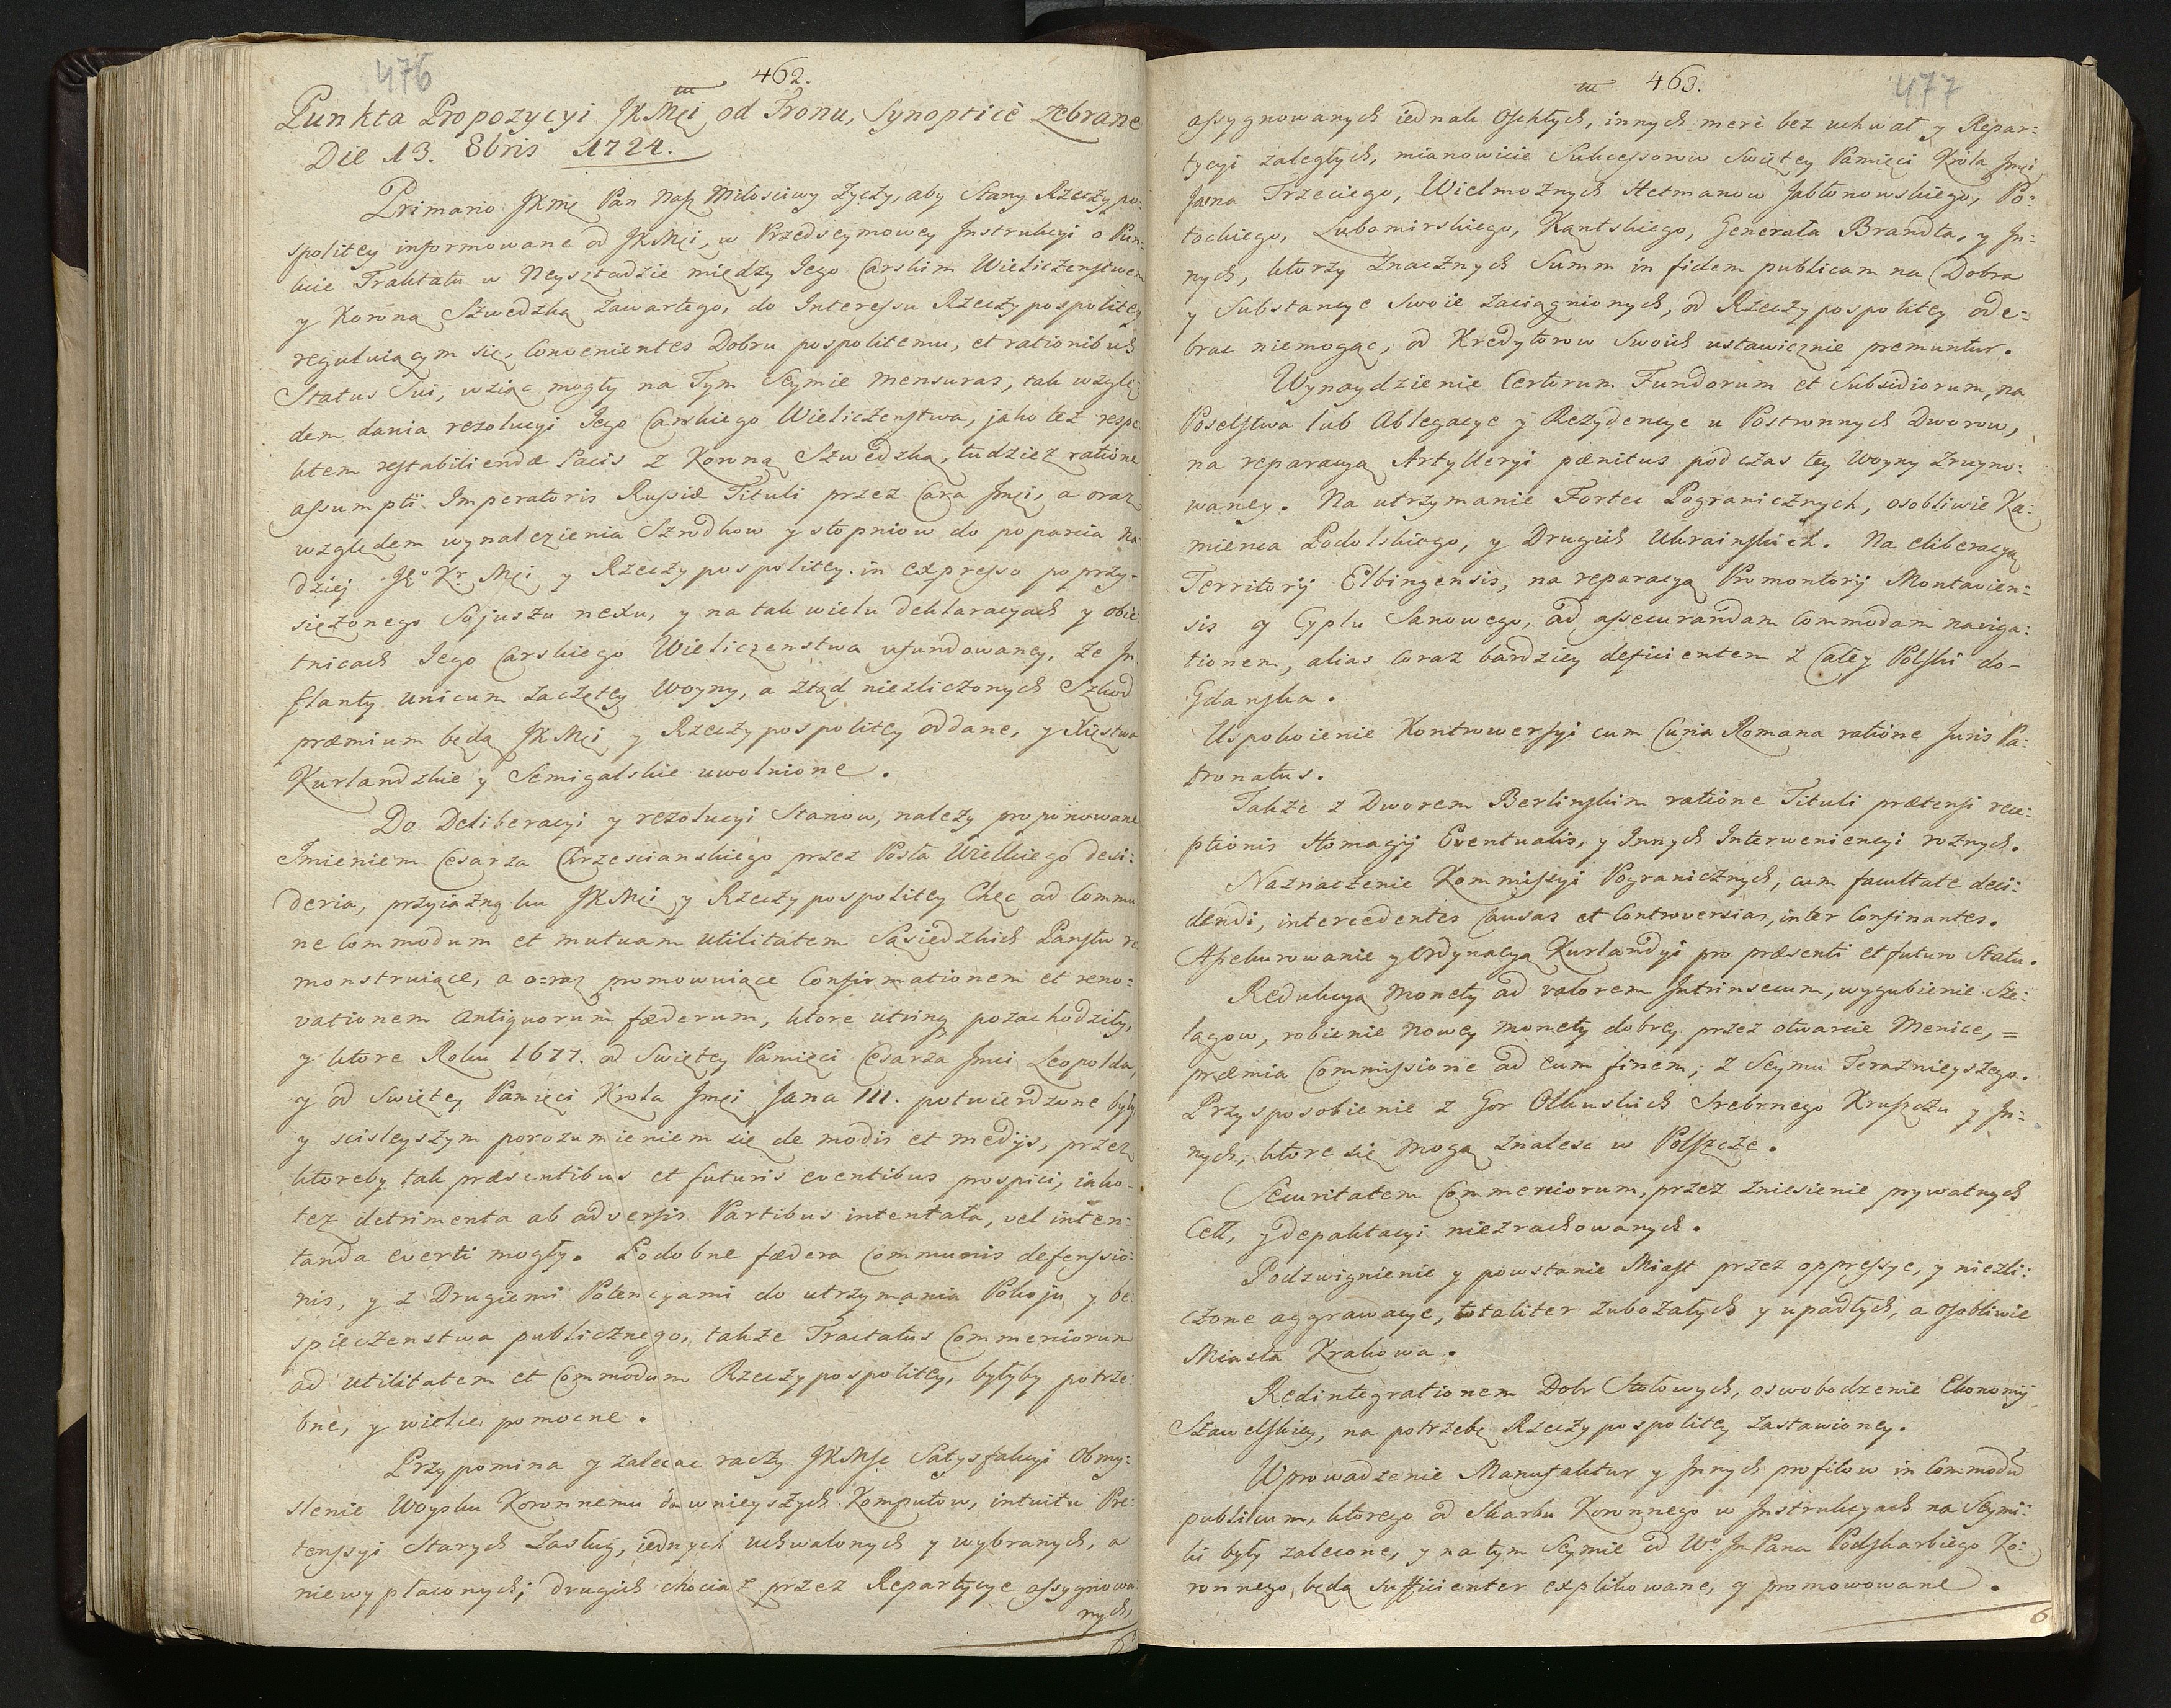 476
462.
Punkta Propozycyi JKMći od Tronu, Synopticè zebrane
Die 13. 8bris 1724.
Primario JKMć Pan Nasz Miłosciwy życzy, aby Stany Rzeczy po:
spolitey informowane od JKMći, w Przedseymowey Instrukcyi o Pun:
kcie Traktatu w Neysztadzie między Jego Carskim Wieliczeństwem
y Koroną Szwedzką zawartego, do Interessu Rzeczypospolitey
reguluiącym się, Convenientes Dobru pospolitemu, et rationibus
Status Sui, wziąc mogły na Tym Seymie mensuras, tak wzglę:
dem dania rezolucyi Jego Carskiego Wieliczeństwa, jako też respe
ktem restabiliendæ Pacis z Koroną Szwedzką, tudzież ratione
assumpti Imperatoris Russiæ Tituli przez Cara Jmći, a oraz
względem wynalezienia Szrodkow y stopniow do poparcia Na
dziej Jgo Kr. Mći y Rzeczypospolitey in expresso poprzy-
siężonego Sojuszu nexu, y na tak wielu deklaracyach y obie
tnicach Jego Carskiego Wieliczenstwa ufundowaney, że In
flanty unicum zaczętey Woyny, a ztąd niezliczonych Szkod
præmium będą JKMći y Rzeczypospolitey oddane, y Xięstwa
Kurlandzkie y Semigalskie uwolnione.
Do Deliberacyi y rezolucyi Stanow, należy proponowane
Imieniem Cesarza Chrzescianskiego przez Posła Wielkiego desi:
deria, przyiaźną ku JKMći y Rzeczypospolitey Chęc ad Commu
ne Commodum et mutuam utilitatem Sąsiedzkich Państw re
monstruiące, a o=raz promowuiące Confirmationem et reno:
vationem Antiquorum fæderum, ktore utrinq pozachodziły,
y ktore Roku 1677. od Swiętey Pamięci Cesarza Jmći Leopolda,
y od Swiętey Pamięci Krola Jmći Jana III. potwierdzone były
y scisleyszym porozumieniem się de modis et medijs, przez
ktoreby tak præsentibus et futuris eventibus prospici, iako-
też detrimenta ab adversis Partibus intentata, vel inten:
tanda everti mogły. Podobne fædera Communis defenssio:
nis, y z Drugiemi Potencyami do utrzymania Pokoju y be:
spieczenstwa publicznego, także Tractatus Commerciorum
ad utilitatem et Commodum Rzeczypospolitey, byłyby potrze:
bne, y wielce pomocne.
Przypomina y zalecac raczy JKMśc Satysfakcyi obmy:
slenie Woysku Koronnemu dawnieyszych Komputow, intuitu Pre:
tenssyi Starych Zasług, iednych uchwalonych y wybranych, a
niewypłaconych; drugich chociaż przez Repartycye assygnowa
nych,
463.
477
assygnowanych iednak oschłych, innych merè bez uchwał y Repar:
tycyi zaległych, mianowicie Sukcessorow Swiętey Pamięci Króla Jmći
Jana Trzeciego, Wielmożnych Hetmanow Jabłonowskiego, Po:
tockiego, Lubomirskiego, Kątskiego, Generała Brandta, y In:
nych, ktorzy znacznych Summ in fidem publicam na Dobra
y Substancye Swoie zaciągnionych, od Rzeczypospolitey ode=
brac niemogąc, od Kredytorow Swoich ustawicznie premuntur.
Wynaydzienie Certorum Fundorum et Subsidiorum, na
Poselstwa lub Ablegacye y Rezydencye u Postronnych Dworow,
na reparacyą Artylleryi pænitus podczas tey Woyny zruyno:
waney. Na utrzymanie Fortec Pogranicznych, osobliwie Ka:
mienca Podolskiego, y Drugich Ukrainskich. Na eliberacyą
Territorij Elbingensis, na reparacyą Promontorij Montavien:
sis y Cyplu Sanowego, ad assecurandam Commodam naviga:
tionem, alias coraz bardziey deficientem z Całey Polski do-
Gdanska.
Uspokoienie Kontrowersyi cum Curia Romana ratione Juris Pa:
tronatus.
Także z Dworem Berlinskim ratione Tituli prætensi rece:
ptionis Homagij Eventualis, y Innych Interweniencyi rożnych.
Naznaczenie Kommissyi Pogranicznych, cum facultate deci:
dendi, intercedentes Causas et Controversias, inter Confinantes.
Assekurowanie y Ordynacyą Kurlandyi pro præsenti et futuro Statu.
Redukcyą Monety ad valorem Intrinsecum, wygubienie Sze:
lągow, robienie Nowey monety dobrey przez otwarcie Menice, =
præmia Commissione ad eum finem, z Seymu Teraznieyszego.
Przysposobienie z Gor Olkuskich Srebrnego Kruszczu y In=
nych, ktore się mogą znalesc w Polszcze.
Securitatem Commerciorum, przez zniesienie prywatnych
Cełł, y depaktacyi niezrachowanych.
Podzwignienie y powstanie Miast przez oppressye, y niezli:
czone aggrawacye, totaliter zubożałych y upadłych, a osobliwie
Miasta Krakowa.
Redintegrationem Dobr Stołowych, oswobodzenie Ekonomij
Szawelskiey, na potrzebę Rzeczypospolitey zastawioney.
Wprowadzenie Manufaktur y Innych profitow in Commodũ
publicum, ktorego od Skarbu Koronnego w Instrukcyach na Seymi:
ki były zalecone, y na tym Seymie od Wo. Jn Pana Podskarbiego Ko:
ronnego, będą sufficienter explikowane, y promowowane.
6